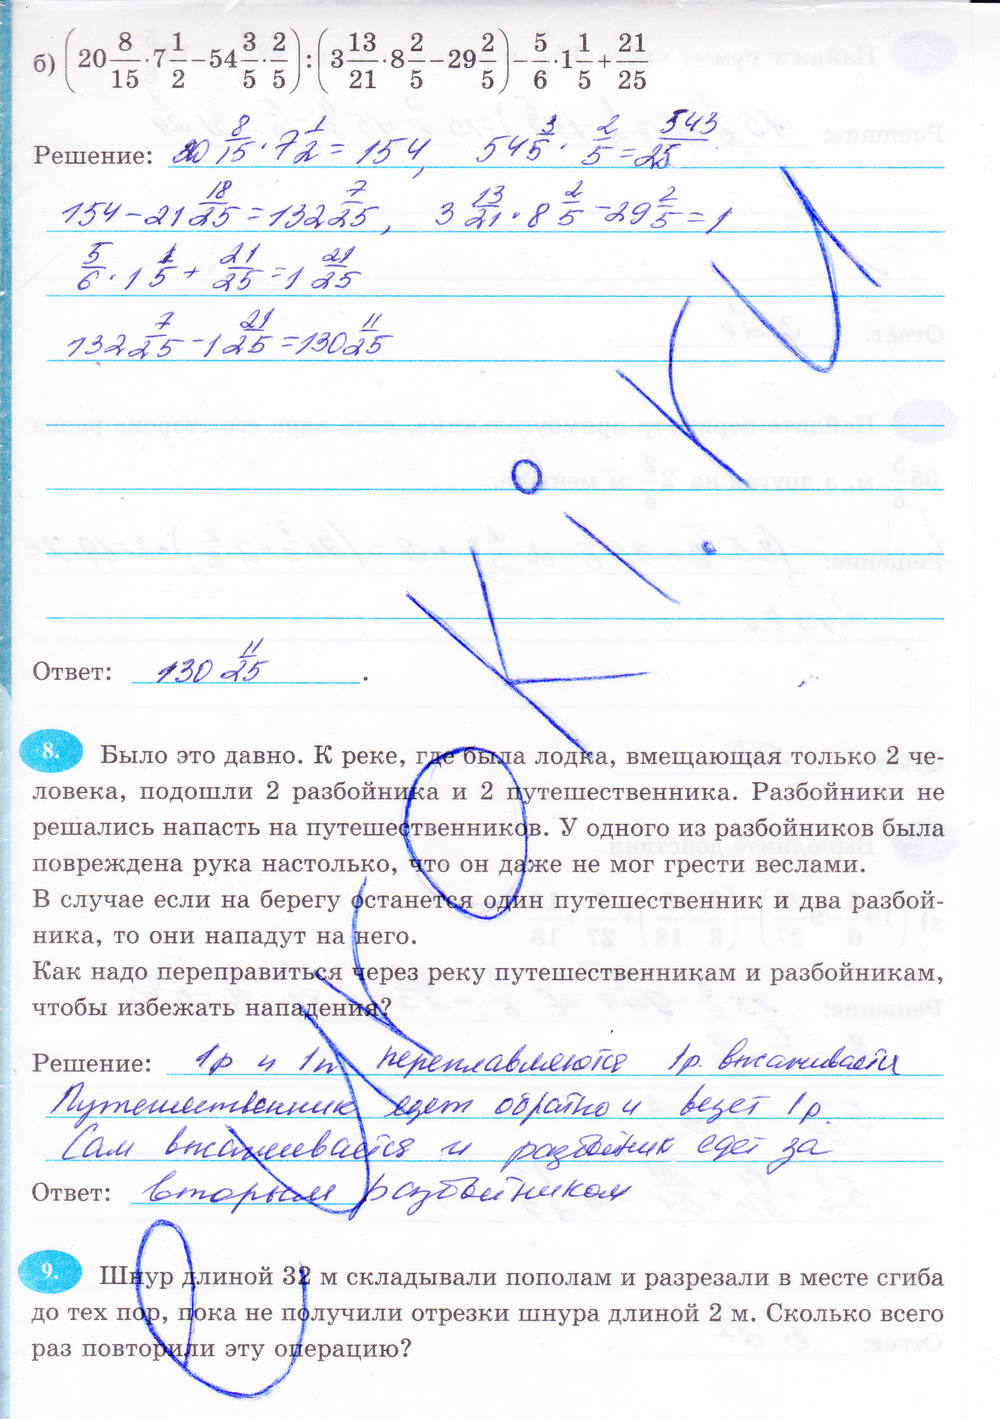 б) (20 8/15 · 7 1/2 − 54 3/5 · 2/5) : (3 13/21 · 8 2/5 − 29 2/5) − 5/6 · 1 1/5 + 21/25
Решение: 20 8/15 · 7 1/2 = 154, 54 3/5 · 2/5 = 543/25
154 − 21 18/25 = 132 7/25, 3 13/21 · 8 2/5 − 29 2/5 = 1
5/6 · 1 1/5 + 21/25 = 1 21/25
132 7/25 − 1 21/25 = 130 11/25
Ответ: 130 11/25.
8. Было это давно. К реке, где была лодка, вмещающая только 2 че-
ловека, подошли 2 разбойника и 2 путешественника. Разбойники не
решались напасть на путешественников. У одного из разбойников была
повреждена рука настолько, что он даже не мог грести веслами.
В случае если на берегу останется один путешественник и два разбой-
ника, то они нападут на него.
Как надо переправиться через реку путешественникам и разбойникам,
чтобы избежать нападения?
Решение: 1р и 1п переплавляются 1р. высаживается
Путешественник едет обратно и везет 1р.
Сам высаживается и разбойник едет за
Ответ: вторым разбойником
9. Шнур длиной 32 м складывали пополам и разрезали в месте сгиба
до тех пор, пока не получили отрезки шнура длиной 2 м. Сколько всего
раз повторили эту операцию?